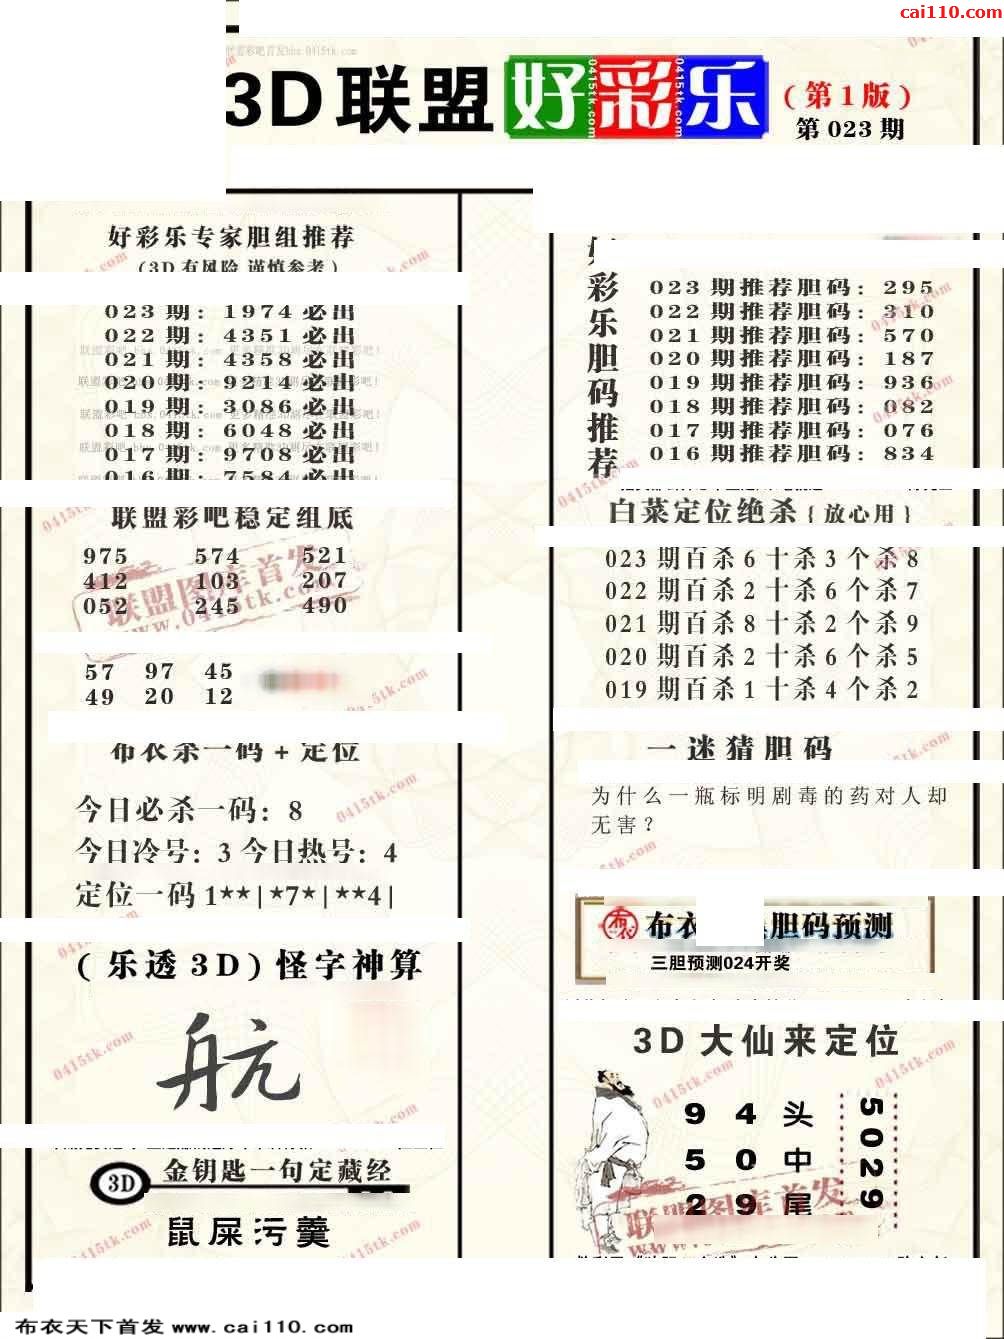 cai110.com
3D联盟好彩乐
(第1版)
第023期
好彩乐专家胆组推荐
(3D有风险 谨慎参考)
023期: 1974必出
022期: 4351必出
021期: 4358必出
020期: 9214必出
019期: 3086必出
018期: 6048必出
017期: 9708必出
016期: 7584必出
联盟彩吧稳定组底
975 574 521
412 103 207
052 245 490
57 97 45
49 20 12
布衣杀一码+定位
今日必杀一码: 8
今日冷号: 3 今日热号: 4
定位一码 1**|*7*|**4|
(乐透3D)怪字神算
航
3D 金钥匙一句定藏经
鼠屎污羹
彩乐胆码推荐
023期推荐胆码: 295
022期推荐胆码: 310
021期推荐胆码: 570
020期推荐胆码: 187
019期推荐胆码: 936
018期推荐胆码: 082
017期推荐胆码: 076
016期推荐胆码: 834
白菜定位绝杀{放心用}
023期百杀6十杀3个杀8
022期百杀2十杀6个杀7
021期百杀8十杀2个杀9
020期百杀2十杀6个杀5
019期百杀1十杀4个杀2
一迷猜胆码
为什么一瓶标明剧毒的药对人却
无害?
布衣 布衣 胆码预测
三胆预测024开奖
3D大仙来定位
9 4 头
5 0 中
2 9 尾
5029
联盟图库首发
www.0415tk.com
0415tk.com
布衣天下首发 www.cai110.com